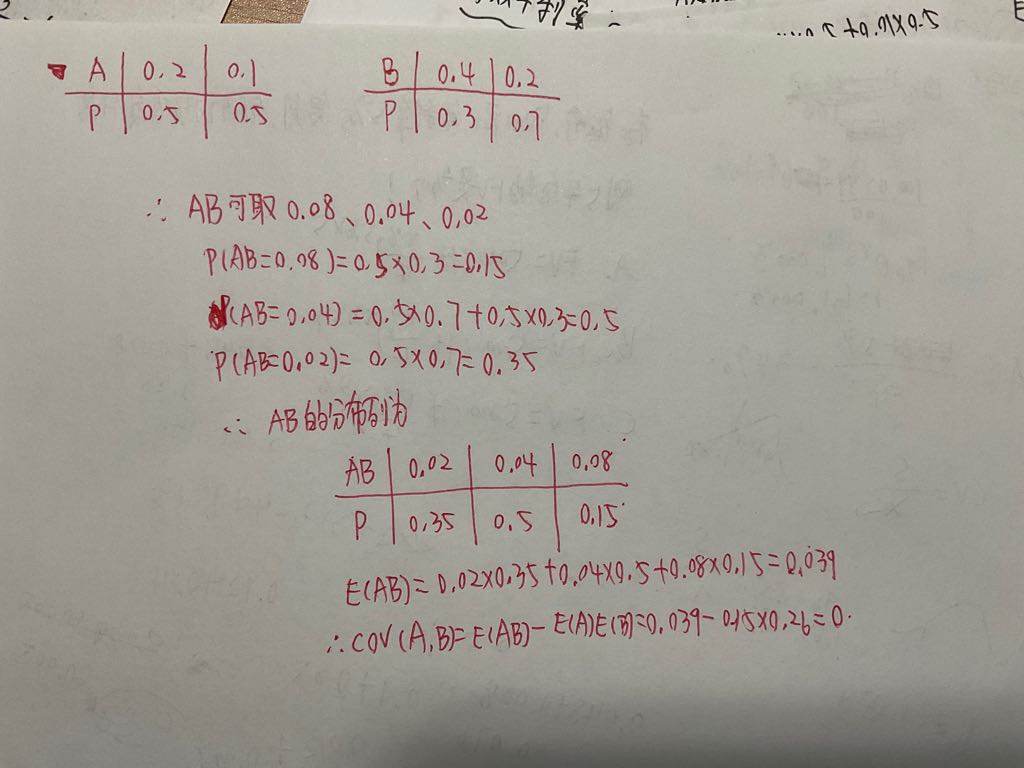 +0.01×0.5
A | 0.2 | 0.1
P | 0.5 | 0.5
B | 0.4 | 0.2
P | 0.3 | 0.7
∴ AB可取0.08、0.04、0.02
P(AB=0.08)=0.5×0.3=0.15
P(AB=0.04)=0.5×0.7+0.5×0.3=0.5
P(AB=0.02)=0.5×0.7=0.35
∴ AB的分布列为
AB | 0.02 | 0.04 | 0.08
P | 0.35 | 0.5 | 0.15
E(AB)=0.02×0.35+0.04×0.5+0.08×0.15=0.039
∴COV(A,B)=E(AB)-E(A)E(B)=0.039-0.15×0.26=0.